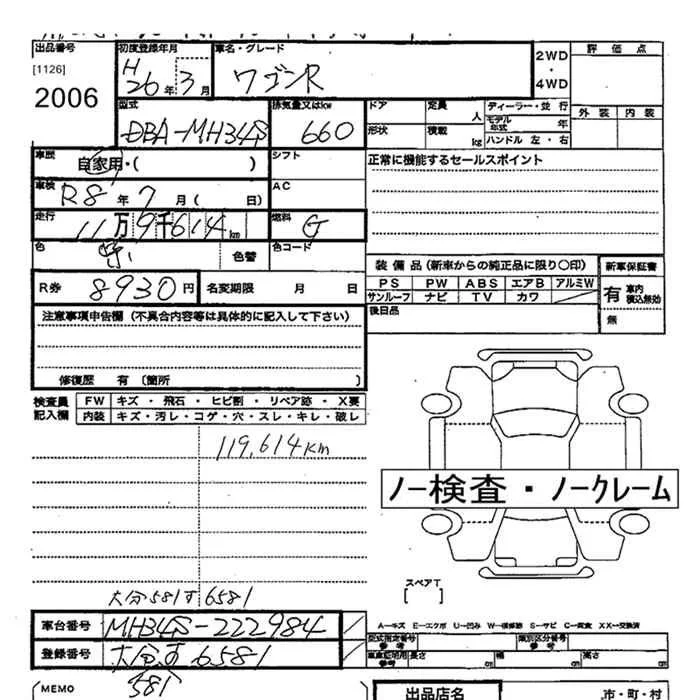 出品番号 初度登録年月 車名・グレード 2WD・4WD 評価点
[1126] H
2006 26年3月 ワゴンR
型式 排気量又はkw ドア 定員 人 ディーラー・並行 外装 内装
DBA-MH34S 660 モデル年式 年
形状 積載 kg ハンドル 左・右
車歴 自家用・( ) シフト 正常に機能するセールスポイント
車検 R8年7月( 日) AC
走行 11万9千614km 燃料 G
色 色替 色コード
装備品(新車からの純正品に限り○印) 新車保証書
R券 8930円 名変期限 月 日
PS PW ABS エアB アルミW 有 車内 積込無効
サンルーフ ナビ TV カワ
後日品 無
注意事項申告欄(不具合内容等は具体的に記入して下さい)
修復歴 有〔箇所 〕
検査員記入欄 FW キズ・飛石・ヒビ割・リペア跡・X要
内装 キズ・汚レ・コゲ・穴・スレ・キレ・破レ
119,614km
ノー検査・ノークレーム
スペアT
[ ]
大分581す6581
車台番号 MH34S-222984
A―キズ E―エクボ U―凹み W―補修跡 S―サビ C―腐食 XX―交換済
型式指定番号 参考 類別区分番号 参考
登録番号 大分す6581
車庫証明用 参考 長さ cm 幅 cm 高さ cm
581
(MEMO 出品店名 市・町・村